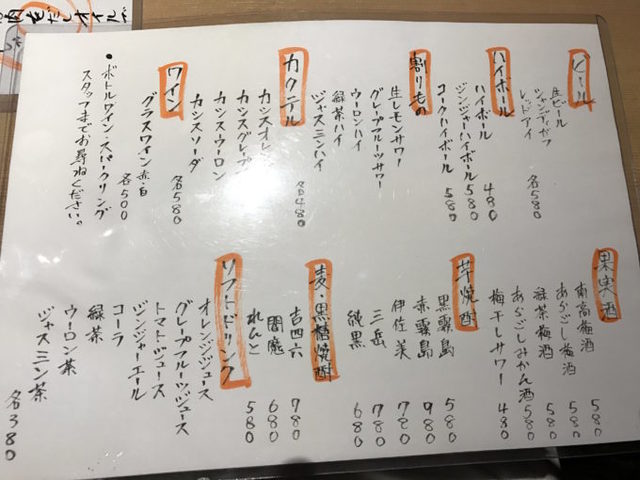 ビール
生ビール
シャンディガフ
レッドアイ
各580
ハイボール
ハイボール 480
ジンジャーハイボール 580
コークハイボール 580
割りもの
生レモンサワー
グレープフルーツサワー
ウーロンハイ
緑茶ハイ
ジャスミンハイ
各480
カクテル
カシスオレ
カシスグレープ
カシスウーロン
カシスソーダ
各580
ワイン
グラスワイン 赤・白
各500
●ボトルワイン・スパークリング
スタッフまでお尋ねください。
果実酒
南高梅酒 580
あらごし梅酒 580
緑茶梅酒 580
あらごしみかん酒 580
梅干しサワー 480
芋焼酎
黒霧島 580
赤霧島 980
伊佐美 780
三岳 780
純黒 680
麦・黒糖焼酎
吉四六 780
閻魔 680
れんと 580
ソフトドリンク
オレンジジュース
グレープフルーツジュース
トマトジュース
ジンジャーエール
コーラ
緑茶
ウーロン茶
ジャスミン茶
各380